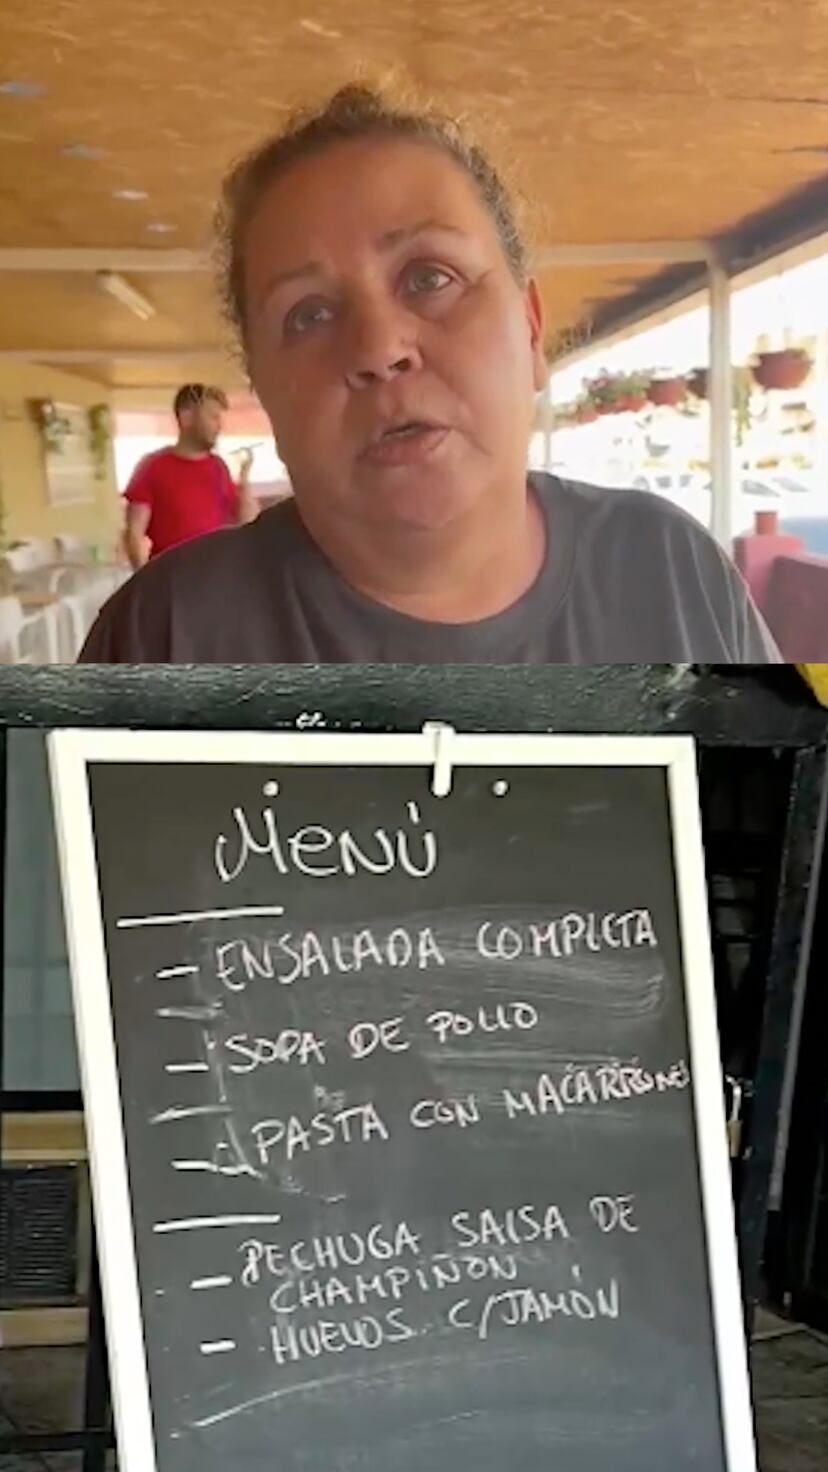 Menú
- ENSALADA COMPLETA
- SOPA DE POLLO
- PASTA CON MACARRONES
- PECHUGA SALSA DE
CHAMPIÑON
- HUEVOS C/JAMÓN